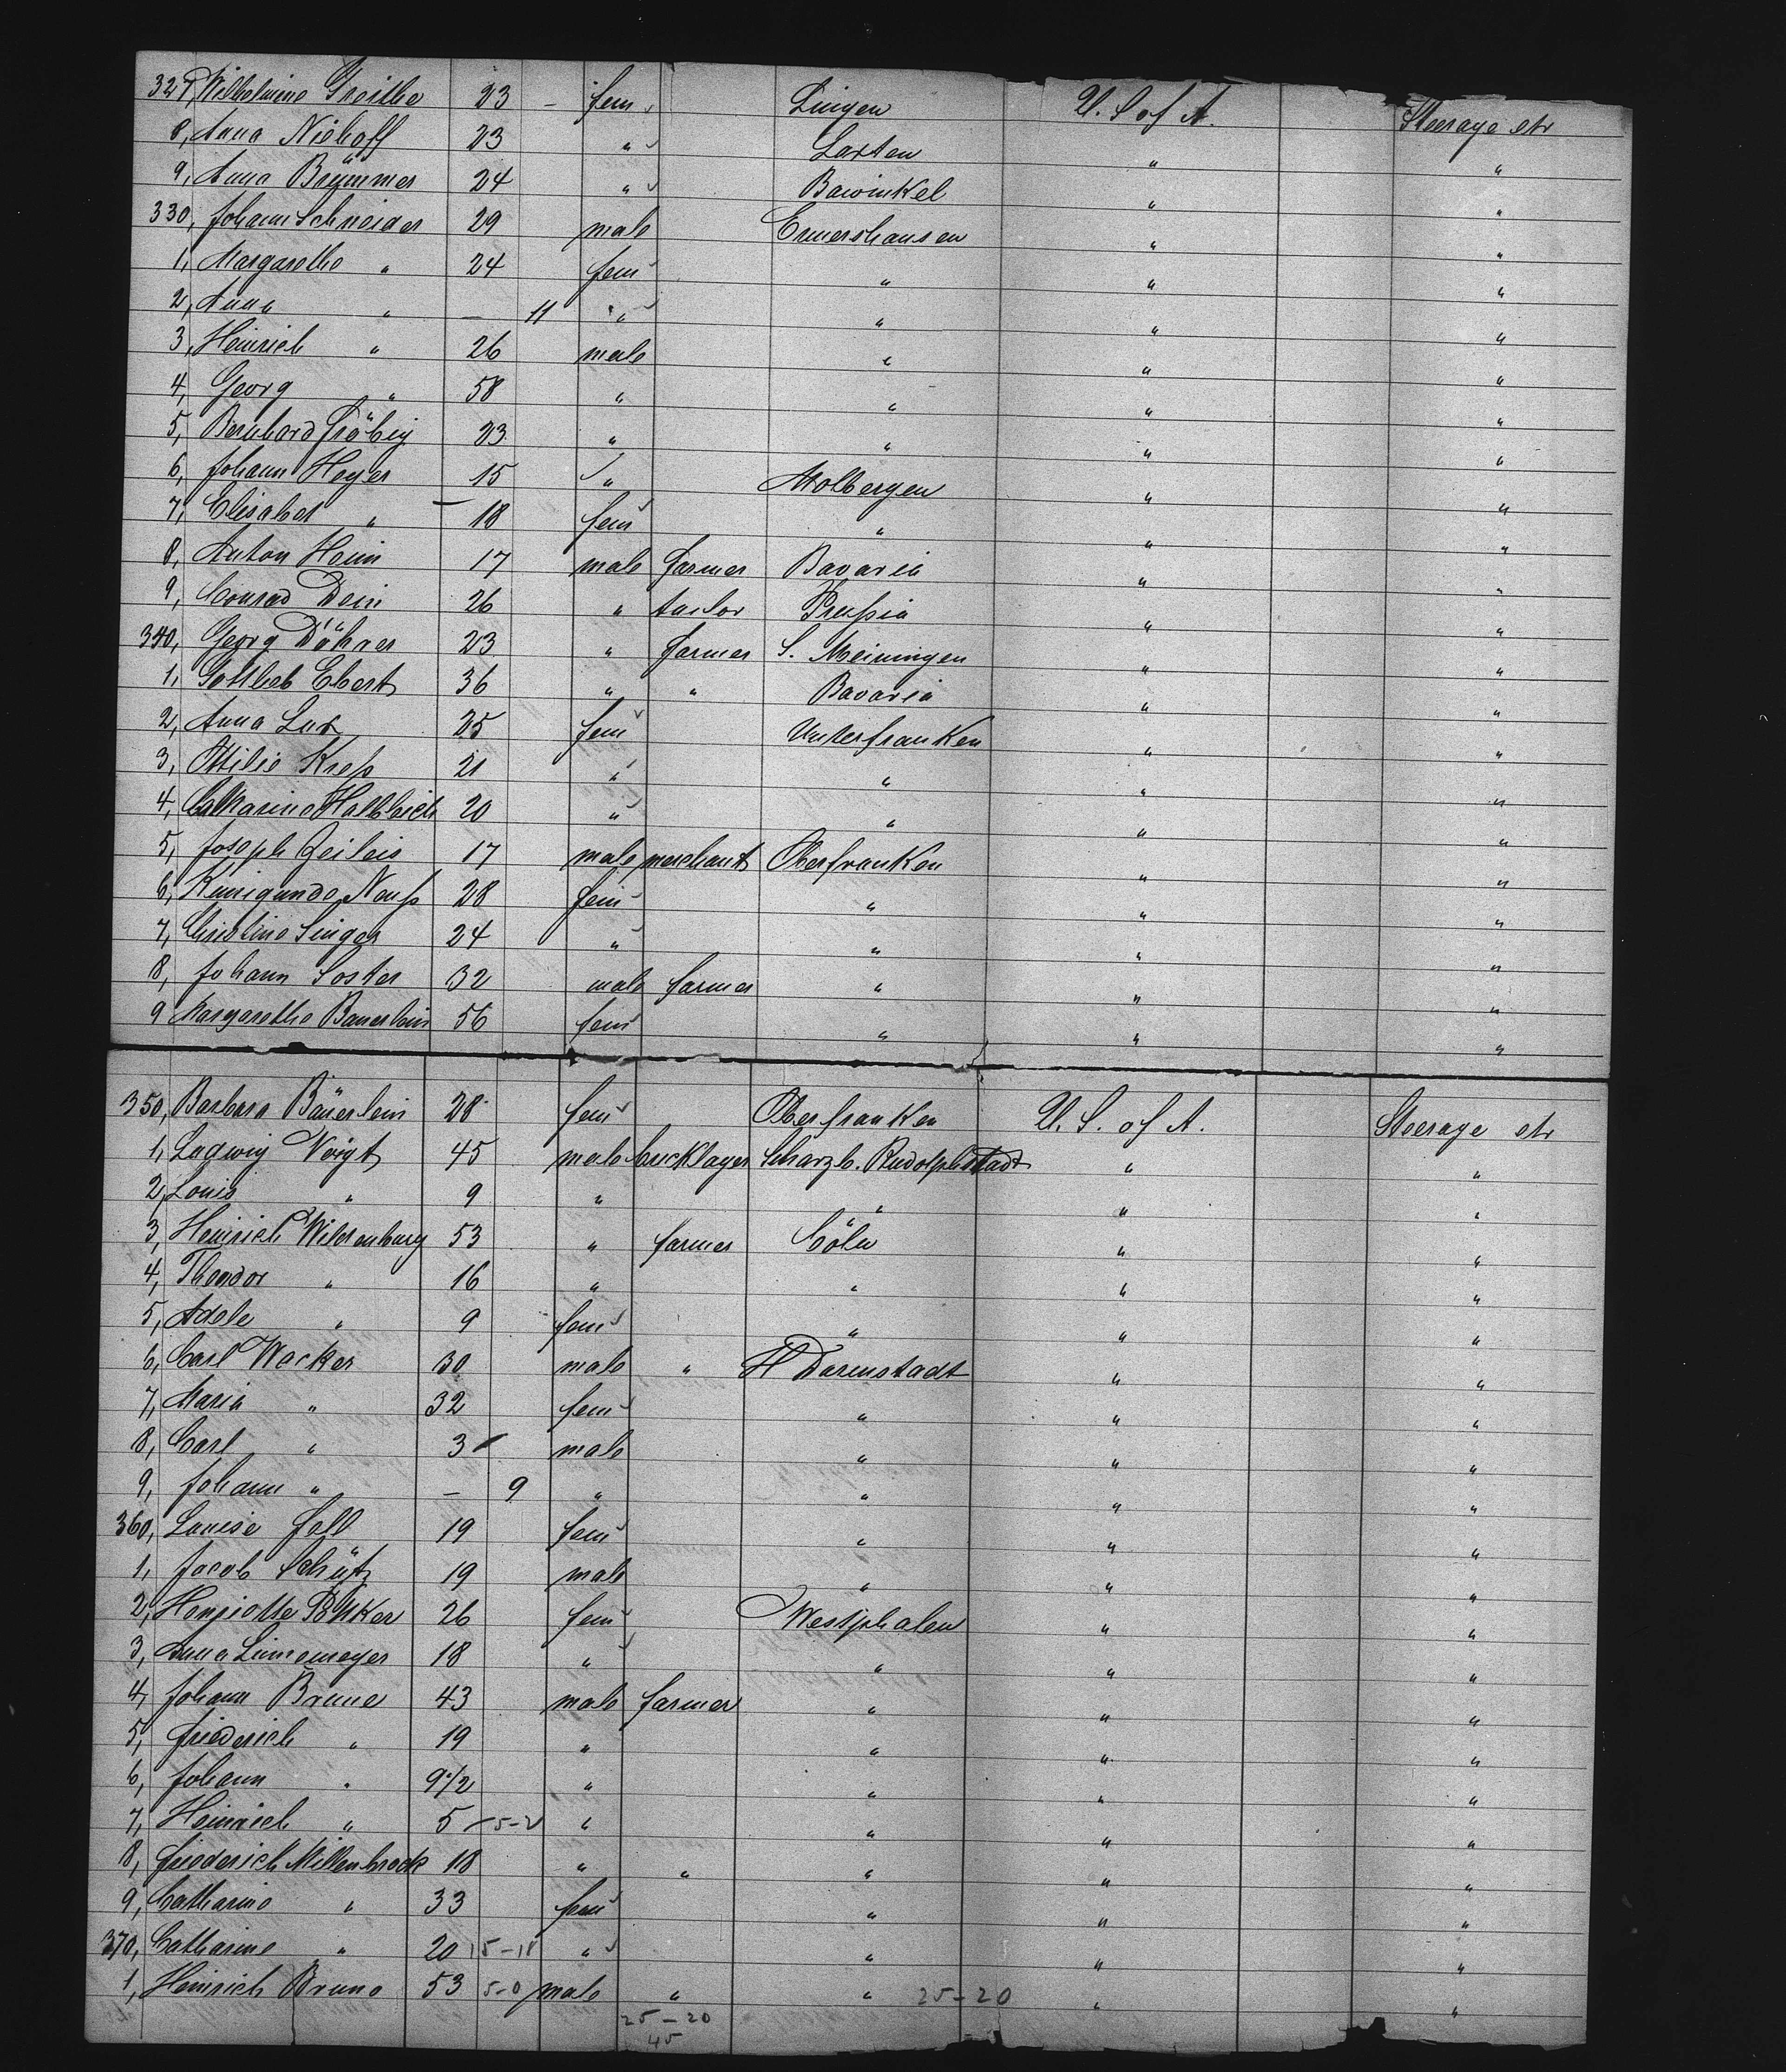 327, Wilhelmine Greilbe 23 – fem Lingen U. S of A. Steerage etr
8, Anna Niehoff 23 " Laxten " "
9, Anna Brümmer 24 " Bawinkel " "
330, Johann Schneider 29 male Ermershausen " "
1, Margarethe " 24 fem " " "
2, Anna " – 11 " " " "
3, Heinrich " 26 male " " "
4, Georg " 58 " " " "
5, Bernhard 23 " " " "
6, Johann Heyer 15 " Molbergen " "
7, Elisabet " – 18 fem " " "
8, Anton Heim 17 male farmer Bavaria " "
9, Conrad Dein 26 " tailor Preußia " "
340, Georg Döhrer 23 " farmer S. Meiningen " "
1, Gottlieb Ebert 36 " " Bavaria " "
2, Anna Lux 25 fem Unterfranken " "
3, Ottilie Kreß 21 " " " "
4, Catharine Halbleich 20 " " " "
5, Joseph Zeileis 17 male merchant Oberfranken " "
6, Kunigunde Nauß 28 fem " " "
7, Christine Singer 24 " " " "
8, Johann Soster 32 male farmer " " "
9 Margarethe Bauerlein 56 fem " " "
350, Barbara Bäuerlein 28 fem Oberfranken U. S. of A. Steerage etr
1, Ludwig Voigt 45 male bricklayer Schwarzb. Rudolphstadt " "
2, Louis " 9 " " " "
3, Heinrich Wildenburg 53 " farmer Cöln " "
4, Theodor " 16 " " " "
5, Adele " 9 fem " " "
6, Carl Wacker 30 male " H Darmstadt " "
7, Maria " 32 fem " " "
8, Carl " 3 male " " "
9, Johann " – 9 " " " "
360, Louise Joll 19 fem " " "
1, Jacob Schütz 19 male " " "
2, Henriette Bölker 26 fem Westphalen " "
3, Anna Linnemeyer 18 " " " "
4, Johann Brune 43 male farmer " " "
5, Friederich " 19 " " " "
6, Johann " 9 1/2 " " " "
7, Heinrich " 5 – 5-2 " " " "
8, Friederich Millenbrock 18 " " " " "
9, Catharine " 33 fem " " "
370, Catharine " 20 15-18 " " " "
1, Heinrich Brune 53 5-0 male " " 25-20 " "
25 – 20
45